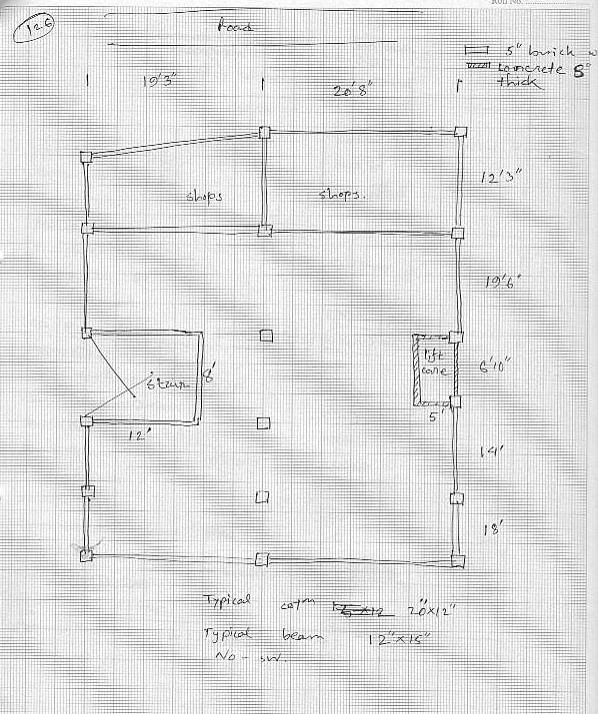 Roll No.
126
Road
5" brick w
concrete 5"
thick
19'3"
20'8"
12'3"
shops
shops.
19'6"
lift
core
6'10"
Stair
8'
5'
12'
14'
18'
Typical colm 20"x12"
Typical beam 12"x15"
No - sw.